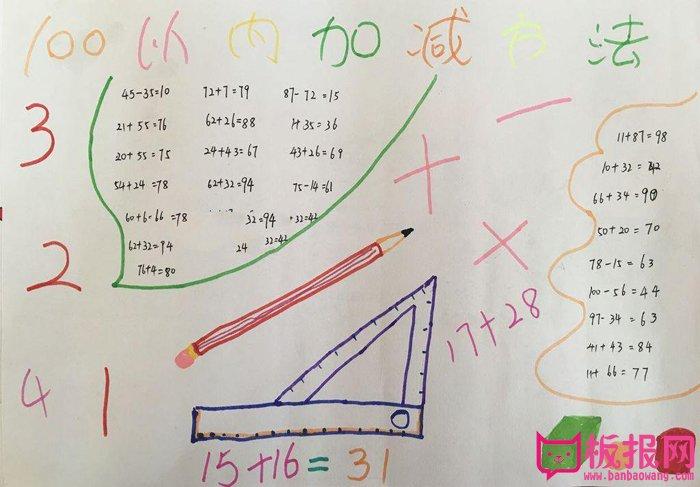 100以内加减方法
3
2
4
1
45-35=10 72+7=79 87-72=15
21+55=76 62+26=88 1+35=36
20+55=75 24+43=67 43+26=69
54+24=78 62+32=94 75-14=61
60+6=66=78 32=94 +32=42
62+32=94 24 32=42
76+4=80
+
-
×
17+28
15+16=31
11+87=98
10+32=42
66+34=90
50+20=70
78-15=63
100-56=44
97-34=63
41+43=84
11+66=77
板报网
www.banbaowang.com